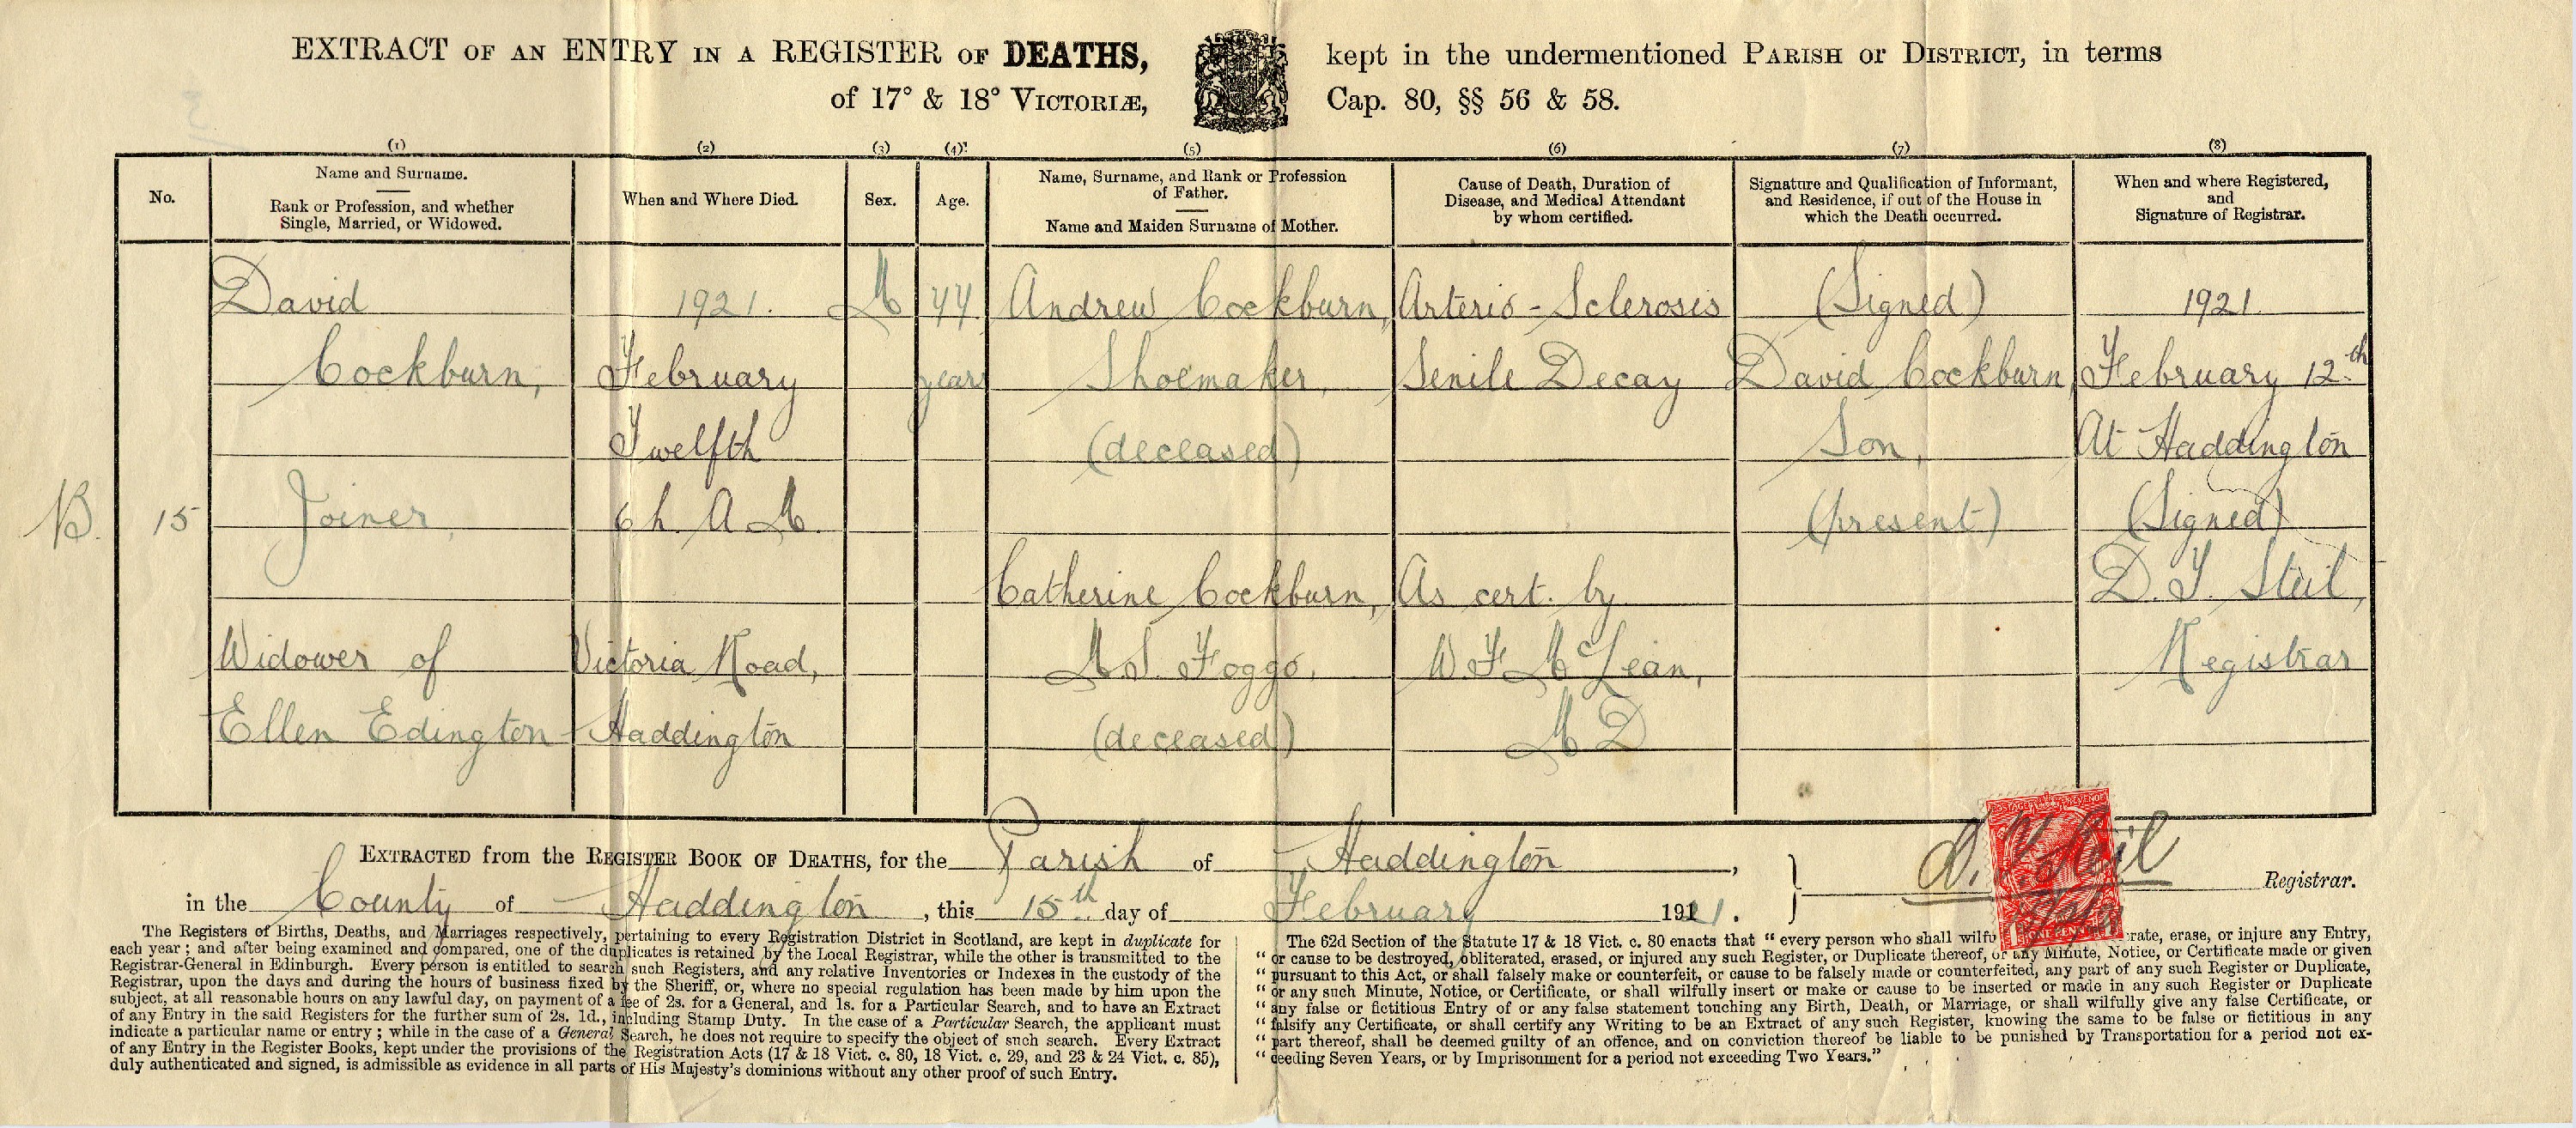 EXTRACT OF AN ENTRY IN A REGISTER OF DEATHS, kept in the undermentioned PARISH or DISTRICT, in terms
of 17° & 18° VICTORIÆ, Cap. 80, §§ 56 & 58.
No.
15
B.
(1)
Name and Surname.
Rank or Profession, and whether
Single, Married, or Widowed.
David
Cockburn,
Joiner
Widower of
Ellen Edington
(2)
When and Where Died.
1921.
February
Twelfth
6 h. A M.
Victoria Road,
Haddington
(3)
Sex.
M
(4)
Age.
77
years
(5)
Name, Surname, and Rank or Profession
of Father.
Name and Maiden Surname of Mother.
Andrew Cockburn,
Shoemaker,
(deceased)
Catherine Cockburn,
M.S. Foggo,
(deceased)
(6)
Cause of Death, Duration of
Disease, and Medical Attendant
by whom certified.
Arterio-Sclerosis
Senile Decay
As cert. by
W. F. McLean,
M D
(7)
Signature and Qualification of Informant,
and Residence, if out of the House in
which the Death occurred.
(Signed)
David Cockburn
Son,
(present)
(8)
When and where Registered,
and
Signature of Registrar.
1921.
February 12th
At Haddington
(Signed)
D. T. Steil,
Registrar
EXTRACTED from the REGISTER BOOK OF DEATHS, for the Parish of Haddington,
in the County of Haddington, this 15th day of February 1921.
D. T. Steil Registrar.
The Registers of Births, Deaths, and Marriages respectively, pertaining to every Registration District in Scotland, are kept in duplicate for
each year; and after being examined and compared, one of the duplicates is retained by the Local Registrar, while the other is transmitted to the
Registrar-General in Edinburgh. Every person is entitled to search such Registers, and any relative Inventories or Indexes in the custody of the
Registrar, upon the days and during the hours of business fixed by the Sheriff, or, where no special regulation has been made by him upon the
subject, at all reasonable hours on any lawful day, on payment of a fee of 2s. for a General, and 1s. for a Particular Search, and to have an Extract
of any Entry in the said Registers for the further sum of 2s. 1d., including Stamp Duty. In the case of a Particular Search, the applicant must
indicate a particular name or entry; while in the case of a General Search, he does not require to specify the object of such search. Every Extract
of any Entry in the Register Books, kept under the provisions of the Registration Acts (17 & 18 Vict. c. 80, 18 Vict. c. 29, and 23 & 24 Vict. c. 85),
duly authenticated and signed, is admissible as evidence in all parts of His Majesty's dominions without any other proof of such Entry.
The 62d Section of the Statute 17 & 18 Vict. c. 80 enacts that "every person who shall wilfu rate, erase, or injure any Entry,
"or cause to be destroyed, obliterated, erased, or injured any such Register, or Duplicate thereof, or any Minute, Notice, or Certificate made or given
"pursuant to this Act, or shall falsely make or counterfeit, or cause to be falsely made or counterfeited, any part of any such Register or Duplicate,
"or any such Minute, Notice, or Certificate, or shall wilfully insert or make or cause to be inserted or made in any such Register or Duplicate
"any false or fictitious Entry of or any false statement touching any Birth, Death, or Marriage, or shall wilfully give any false Certificate, or
"falsify any Certificate, or shall certify any Writing to be an Extract of any such Register, knowing the same to be false or fictitious in any
"part thereof, shall be deemed guilty of an offence, and on conviction thereof be liable to be punished by Transportation for a period not ex-
"ceeding Seven Years, or by Imprisonment for a period not exceeding Two Years."
POSTAGE REVENUE
ONE PENNY